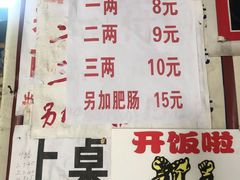 一两 8元
二两 9元
三两 10元
另加肥肠 15元
另
上桌
开饭啦